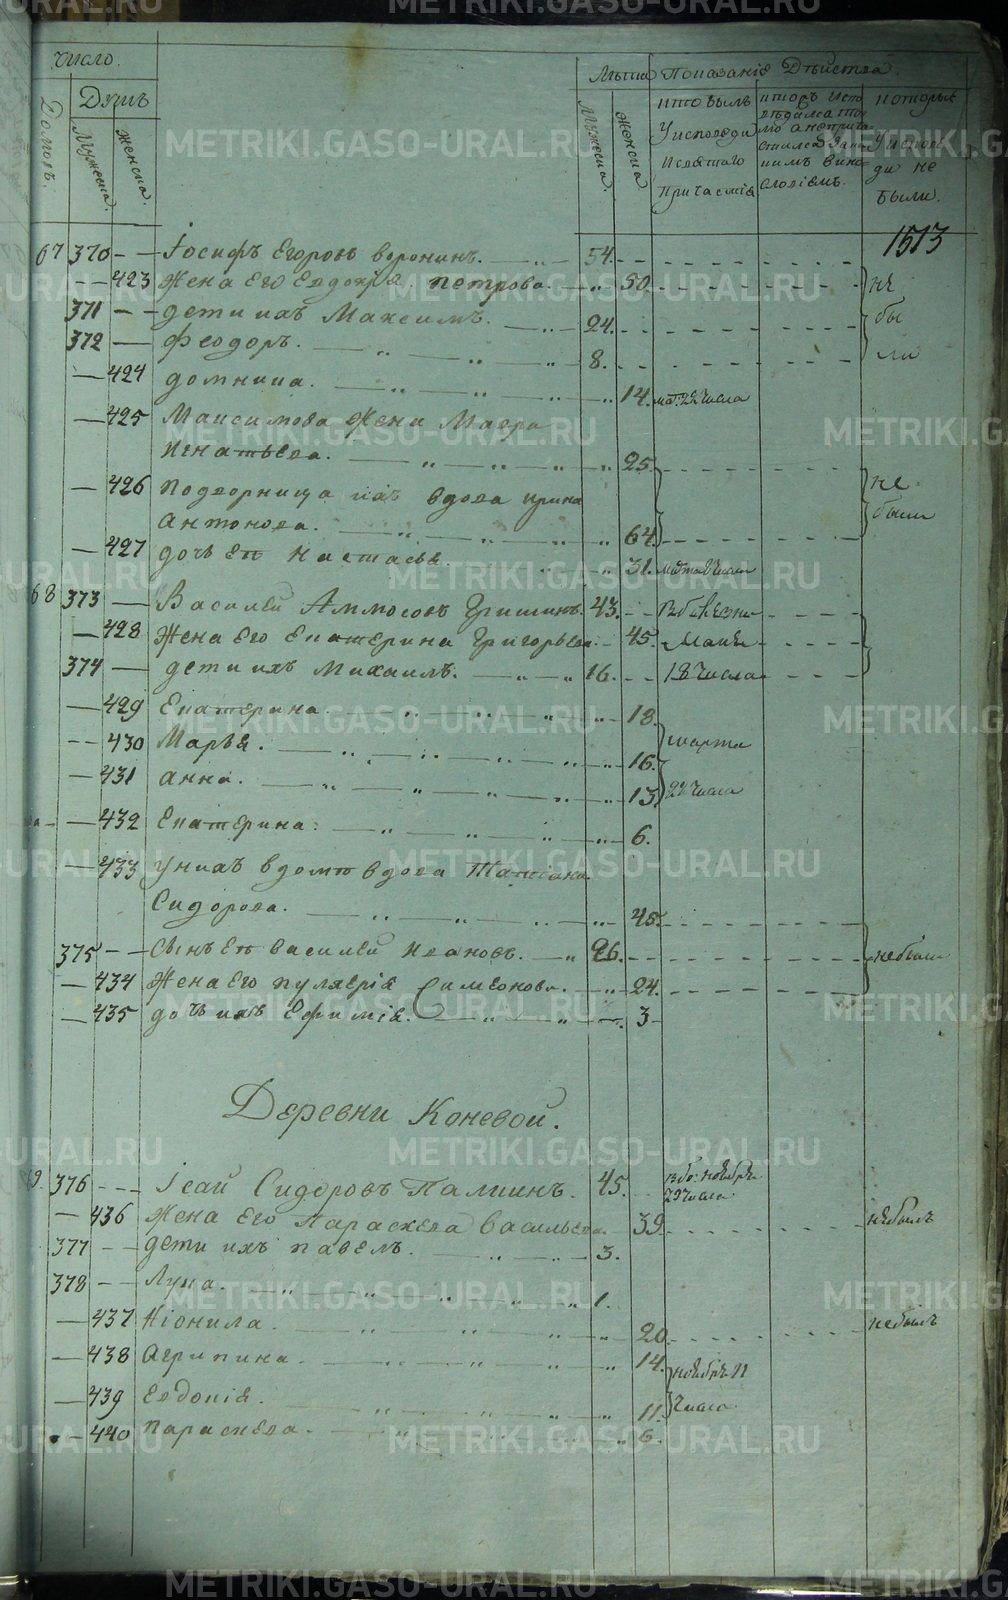 Число.
Лѣта Показанія Дѣйства.
Домовъ.
Душъ
Мужеска.
Женска.
Мужеска.
Женска.
кто былъ
У исповеди
И святаго
Причастія
которыя
У испове-
ди не
были.
1513
67 370 - - Іосифъ Егоровъ воронинъ. 54.
- - 423 Жена Его Евдокія петрова. 50.
не
371 - - дети ихъ Максимъ. 24.
бы
372 — Феодоръ. 8.
ли
— 424 домника. 14. 22 числа
— 425 Максимова Жена Мавра
Игнатьева. 25
— 426 подворница ихъ вдова ирина
не
Антонова. 64.
были
— 427 дочь Ея Настасья. 31.
68 373 — Василей Аммосовъ Гришинъ. 43.
— 428 Жена Его Екатерина Григорьева. 45. Маия
374 — дети ихъ Михаилъ. 16. 18 числа
— 429 Екатерина. 18.
- - 430 Марья. 16. марта
— 431 анна. 13. 22 числа
— 432 Екатерина. 6.
— 433 у нихъ в домѣ вдова Татіана
Сидорова. 45.
375 - - сынъ Ея василей Ивановъ. 26. не были
— 434 Жена Его пулхерія Симеонова. 24.
— 435 дочь ихъ Ефимія. 3
Деревни Коневой.
9. 376 - - - Ісай Сидоровъ Палкинъ. 45. ноября
29 числа
— 436 Жена Его Параскева васильева. 39. не былъ
377 - - дети ихъ павелъ. 3.
378 - - Лука. 1.
— 437 Ніонила. 20 не былъ
— 438 Агрипина. 14. ноября 11
— 439 Евдокія. 11. числа
— 440 параскева. 6.
METRIKI.GASO-URAL.RU